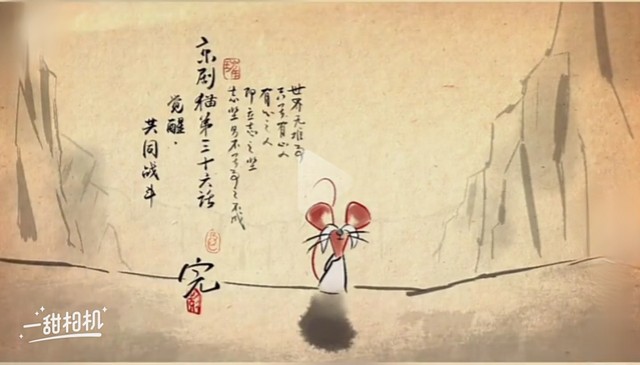 世界无难事
有心人
有心之人
即立志之坚
志坚
事之不成
京剧猫第三十六话
觉醒·
共同战斗
完
一甜相机